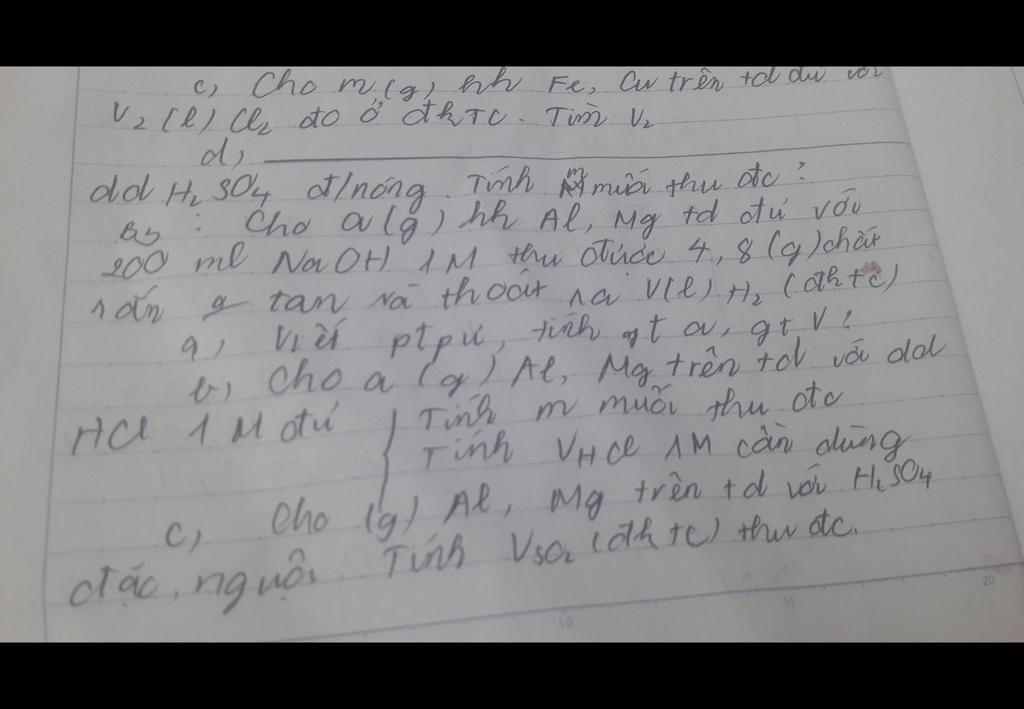 c, Cho m (g) hh Fe, Cu trên td dư với
V2 (l) Cl2 đo ở đkTC. Tìm V2
d,
dd H2SO4 đ/nóng. Tính m muối thu đc?
B3: Cho a(g) hh Al, Mg td đủ với
200 ml NaOH 1M thu được 4,8 (g) chất
rắn tan và thoát ra V(l) H2 (đktc)
a, Viết ptpư, tính gt a, gt V?
b, Cho a (g) Al, Mg trên td với dd
HCl 1M đủ { Tính m muối thu đc
Tính VHCl 1M cần dùng
c, Cho (g) Al, Mg trên td với H2SO4
đặc, nguội. Tính VSO2 (đktc) thu đc.
10 15 20